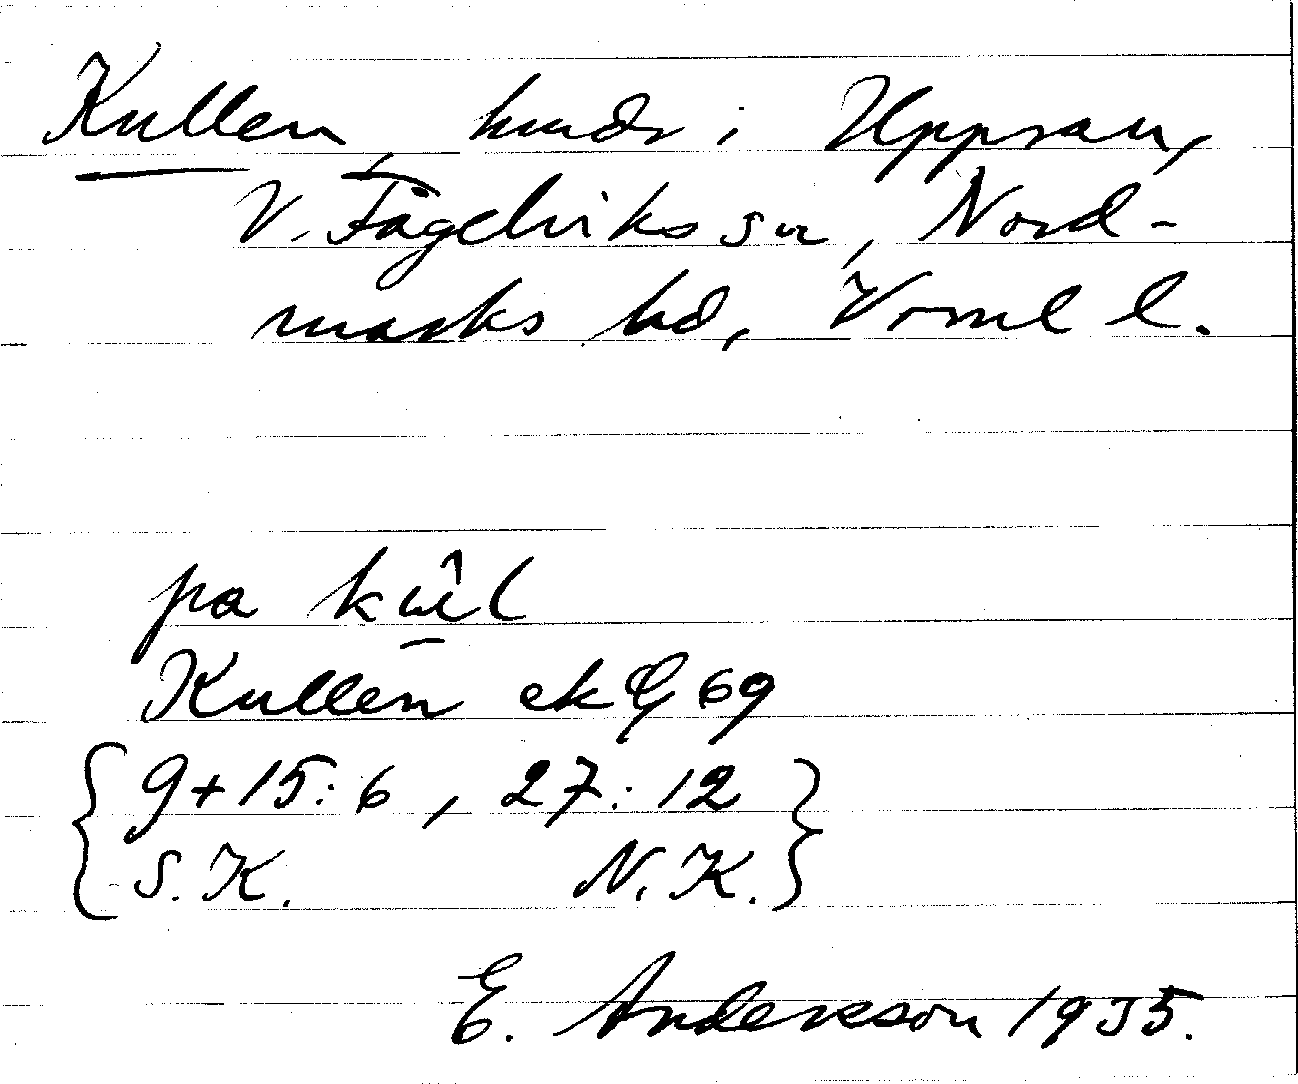 Kullen, hmdr i Uppsau,
V. Fågelviks sn, Nord-
marks hd, Vrml l.
pa
Kullen ek G 69
{ 9+15:6, 27:12 }
{ S.K. N.K. }
E. Andersson 1935.